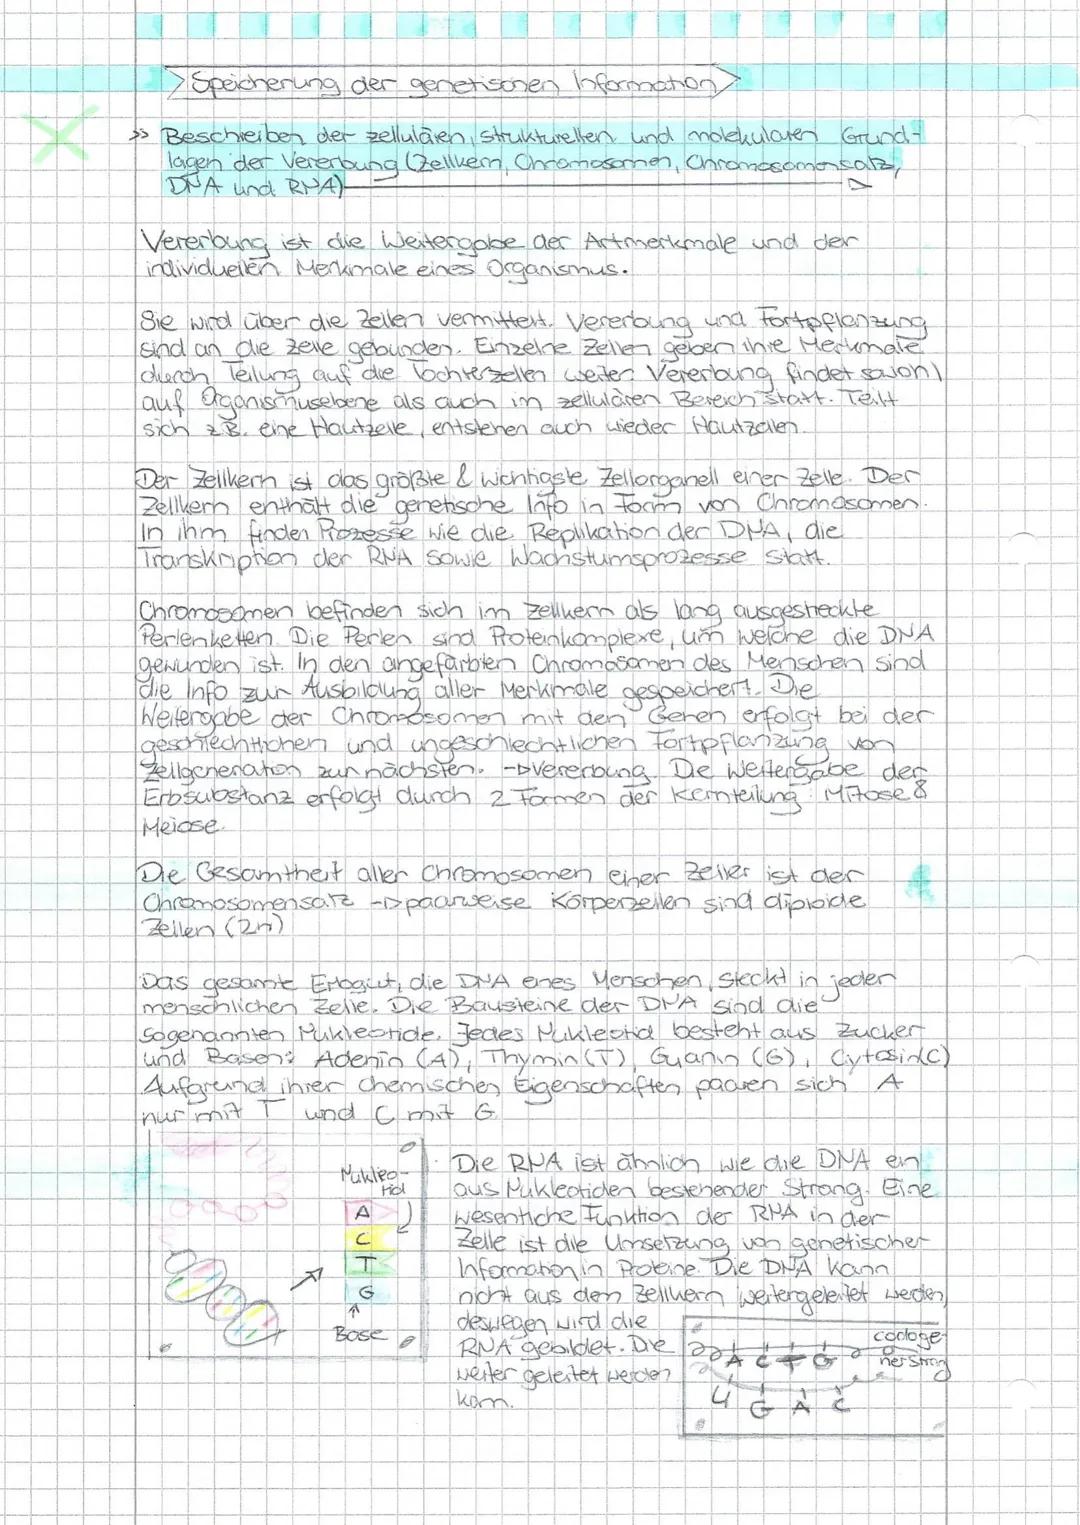 Speicherung der genetischen Information
>> Beschreiben der zellulären, strukturellen und molekularen Grund-
lagen der Vererbung (Zellkern, Chromosomen, Chromosomensatz,
DNA und RNA)
Vererbung ist die Weitergabe der Artmerkmale und der
individuellen Merkmale eines Organismus.
Sie wird über die Zellen vermittelt. Vererbung und Fortpflanzung
sind an die Zelle gebunden. Einzelne Zellen geben ihre Merkmale
durch Teilung auf die Tochterzellen weiter. Vererbung findet sowohl
auf Organismusebene als auch im zellulären Bereich statt. Teilt
sich z.B. eine Hautzelle, entstehen auch wieder Hautzellen.
Der Zellkern ist das größte & wichtigste Zellorganell einer Zelle. Der
Zellkern enthält die genetische Info in Form von Chromosomen.
In ihm finden Prozesse wie die Replikation der DNA, die
Transkription der RNA sowie Wachstumsprozesse statt.
Chromosomen befinden sich im Zellkern als lang ausgestreckte
Perlenketten. Die Perlen sind Proteinkomplexe, um welche die DNA
gewunden ist. In den angefärbten Chromosomen des Menschen sind
die Info zur Ausbildung aller Merkmale gespeichert. Die
Weitergabe der Chromosomen mit den Genen erfolgt bei der
geschlechtlichen und ungeschlechtlichen Fortpflanzung von
Zellgeneration zur nächsten. -> Vererbung. Die Weitergabe der
Erbsubstanz erfolgt durch 2 Formen der Kernteilung: Mitose &
Meiose.
Die Gesamtheit aller Chromosomen einer Zelle ist der
Chromosomensatz -> paarweise Körperzellen sind diploide
Zellen (2n)
Das gesamte Erbgut, die DNA eines Menschen, steckt in jeder
menschlichen Zelle. Die Bausteine der DNA sind die
sogenannten Nukleotide. Jedes Nukleotid besteht aus Zucker
und Basen: Adenin (A), Thymin (T), Guanin (G), Cytosin (C)
Aufgrund ihrer chemischen Eigenschaften paaren sich A
nur mit T und C mit G.
Nukleo-
tid
A
C
T
G
Base
Die RNA ist ähnlich wie die DNA ein
aus Nukleotiden bestehender Strang. Eine
wesentliche Funktion der RNA in der
Zelle ist die Umsetzung von genetischer
Information in Proteine. Die DNA kann
nicht aus dem Zellkern weitergeleitet werden,
deswegen wird die
RNA gebildet. Die
weiter geleitet werden
kann.
codoge-
ner Strang
A C T G
U G A C